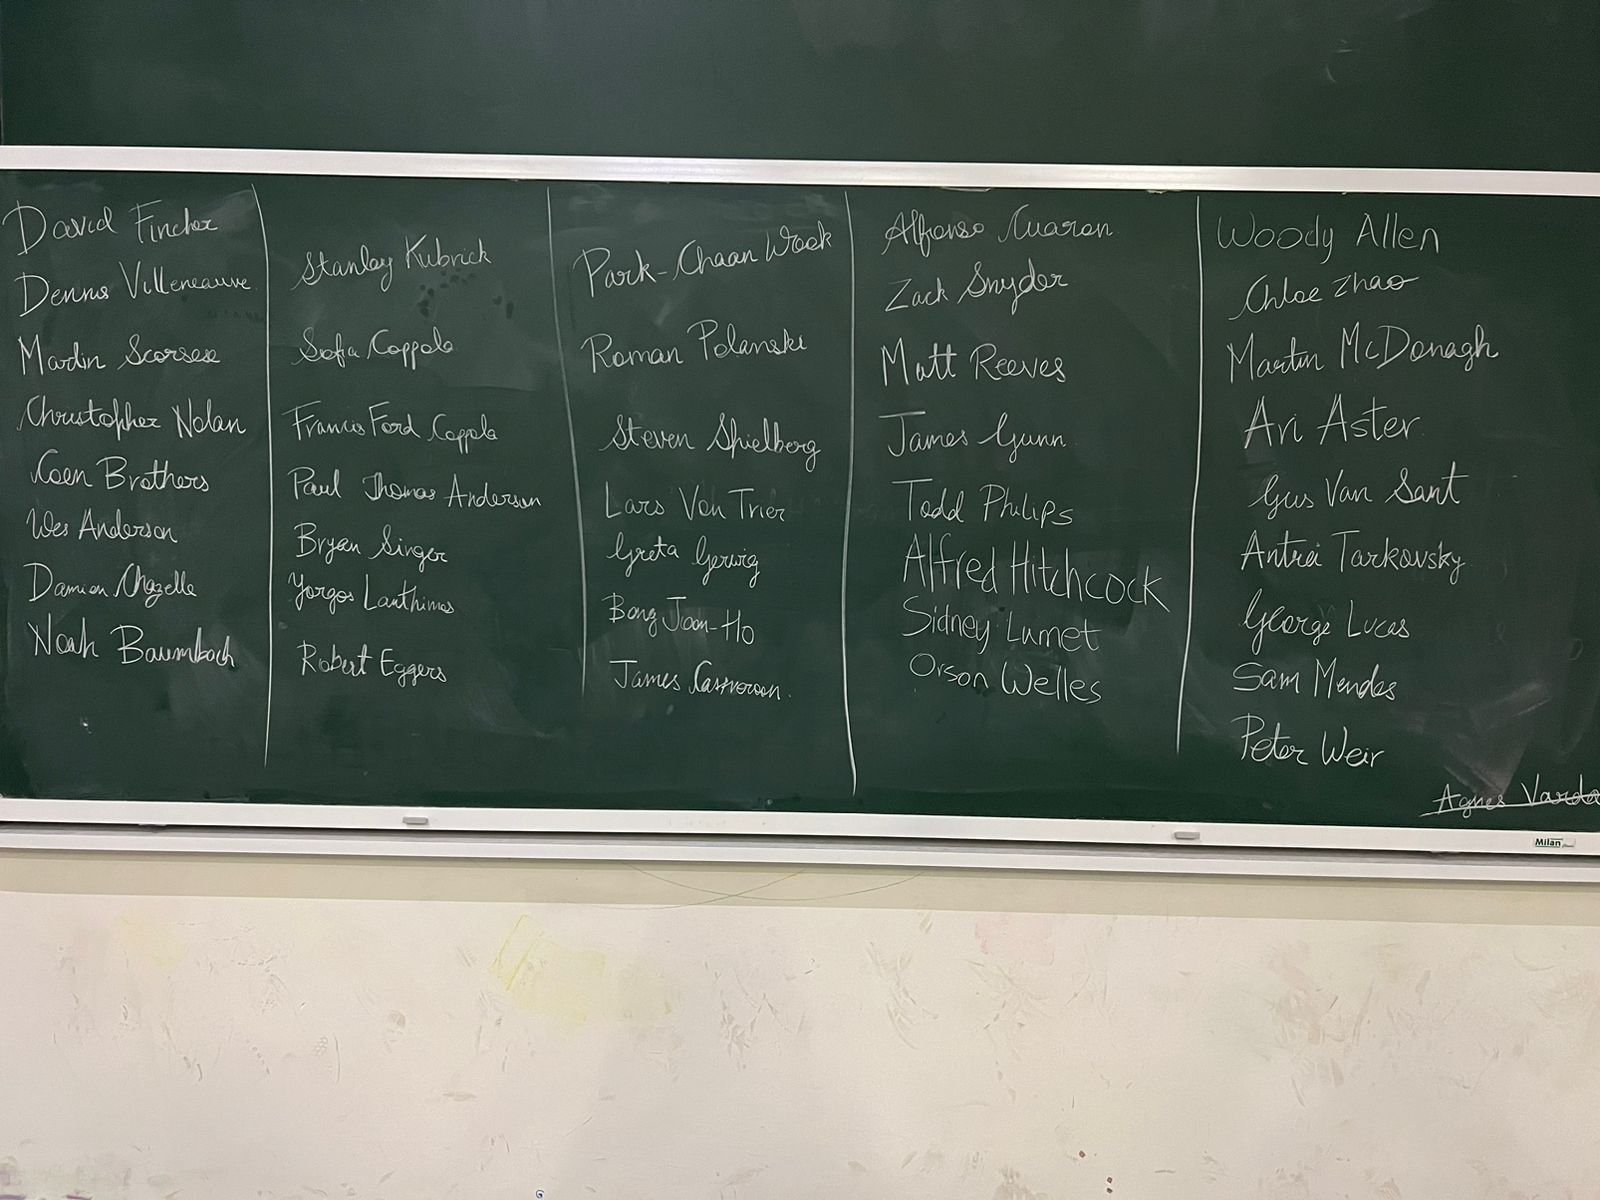 David Fincher
Dennis Villeneauve
Martin Scorsese
Christopher Nolan
Coen Brothers
Wes Anderson
Damien Chazelle
Noah Baumbach
Stanley Kubrick
Sofia Coppola
Francis Ford Coppola
Paul Thomas Anderson
Bryan Singer
Yorgos Lanthimos
Robert Eggers
Park-Chaan Wook
Roman Polanski
Steven Spielberg
Lars Von Trier
Greta Gerwig
Bong Joon-Ho
James Cameroon.
Alfonso Cuaron
Zack Snyder
Matt Reeves
James Gunn
Todd Philips
Alfred Hitchcock
Sidney Lumet
Orson Welles
Woody Allen
Chloe Zhao
Martin McDonagh
Ari Aster
Gus Van Sant
Antrei Tarkovsky
George Lucas
Sam Mendes
Peter Weir
Agnes Varda
Milan